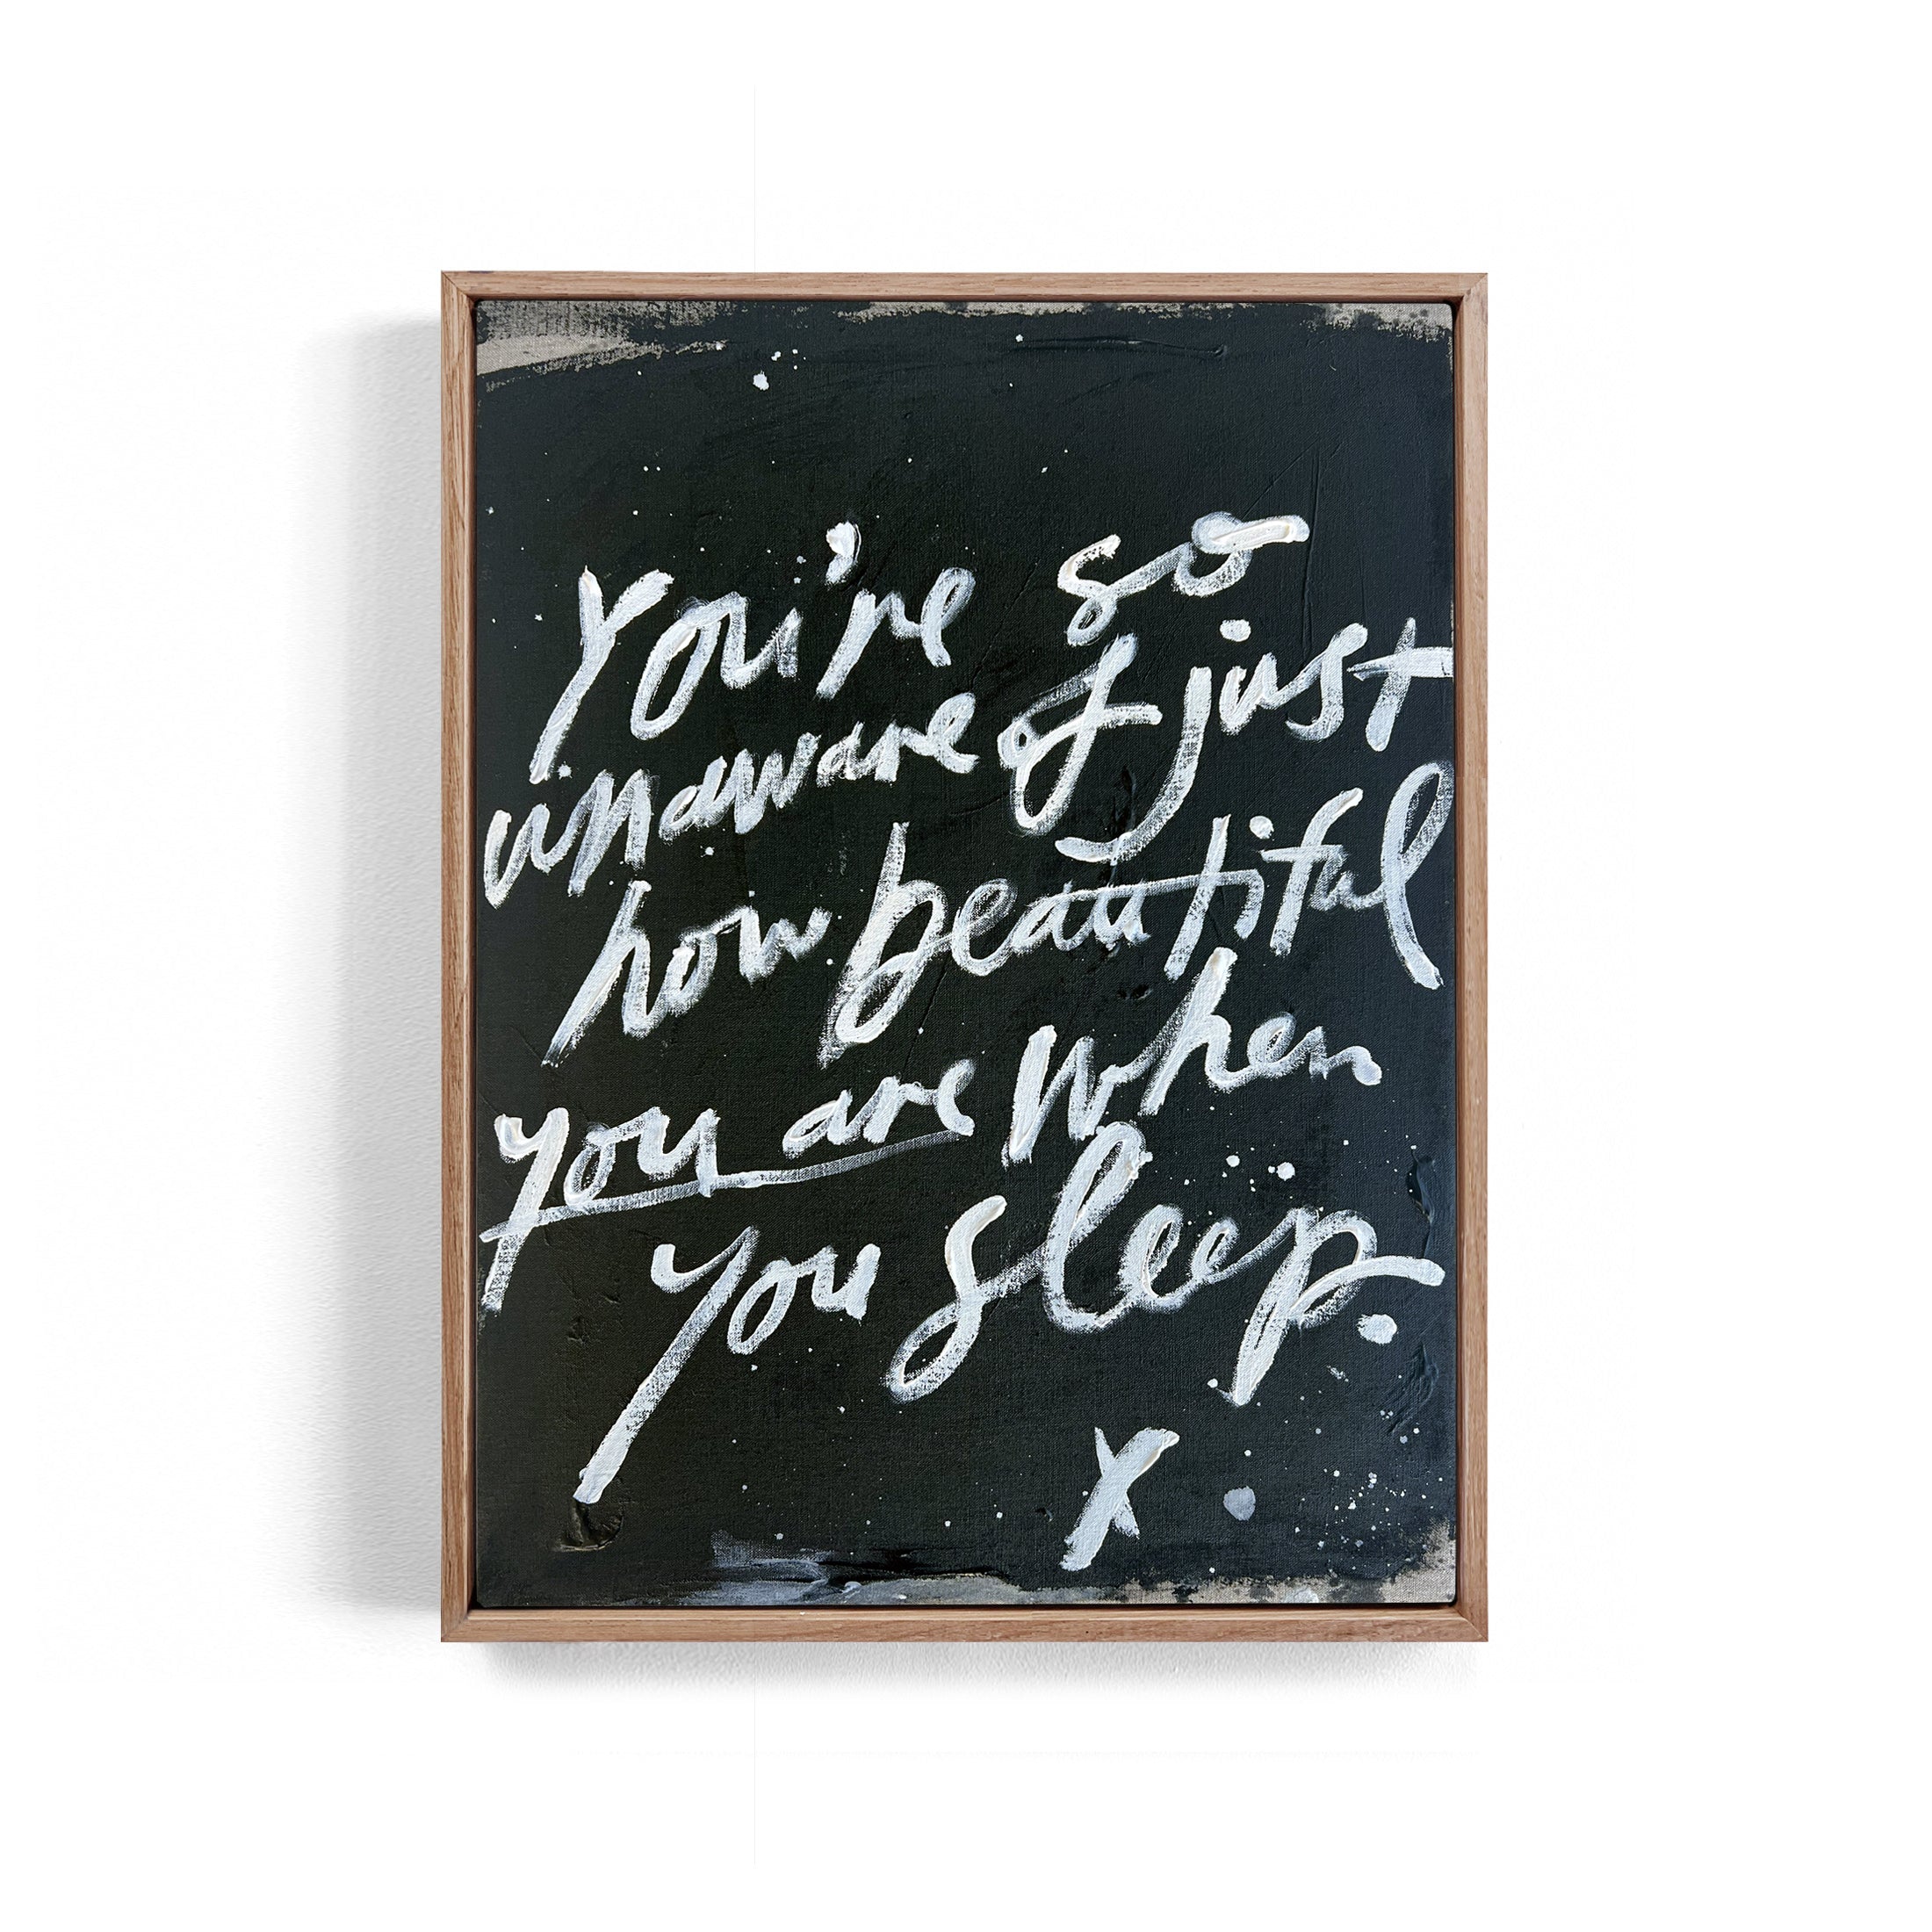 You're so
unaware of just
how beautiful
you are when
you sleep.
x.